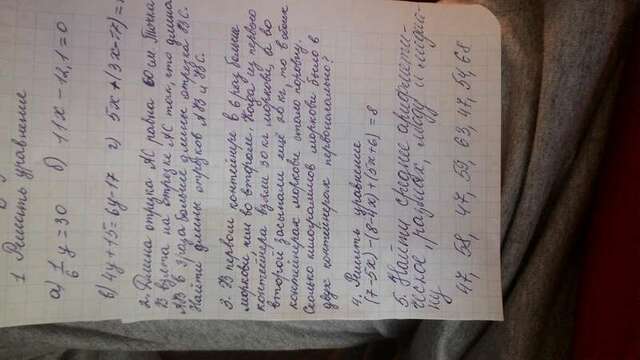 1 Решить уравнение
а) 1/6 y = 30  б) 11x - 12,1 = 0
в) 4y + 15 = 6y - 17  г) 5x + (3x - 7) =
2. Длина отрезка АС равна 60 см. Точка
В взята на отрезке АС так, что длина
АВ в 3 раза больше длины отрезка ВС.
Найти длины отрезков АВ и ВС.
3. В первом контейнере в 6 раз больше
моркови, чем во втором. Когда из первого
контейнера взяли 30 кг моркови, а во
второй засыпали ещё 20 кг, то в обоих
контейнерах моркови стало поровну.
Сколько килограммов моркови было в
двух контейнерах первоначально?
4. Решить уравнение
(7-5x) - (8-4x) + (5x+6) = 8
5. Найти среднее арифмети-
ческое, размах, моду и медиа-
ну
47, 58, 47, 59, 63, 47, 54, 68